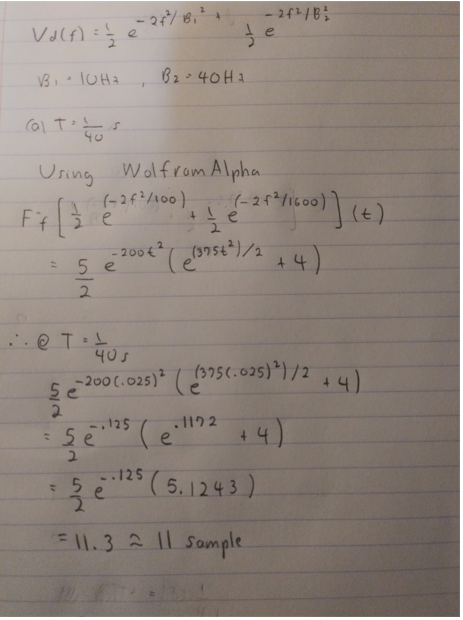 Vd(f) = 1/2 e^(-2f²/B₁²) + 1/2 e^(-2f²/B₂²)
B₁ = 10Hz , B₂ = 40Hz
(a) T = 1/40 s
Using Wolfram Alpha
F f [1/2 e^(-2f²/100) + 1/2 e^(-2f²/1600)] (t)
= 5/2 e^(-200t²) (e^((375t²)/2) + 4)
∴ @ T = 1/40 s
5/2 e^(-200(.025)²) (e^((375(.025)²)/2) + 4)
= 5/2 e^(-.125) (e^(.1172) + 4)
= 5/2 e^(-.125) (5.1243)
= 11.3 ≈ 11 sample